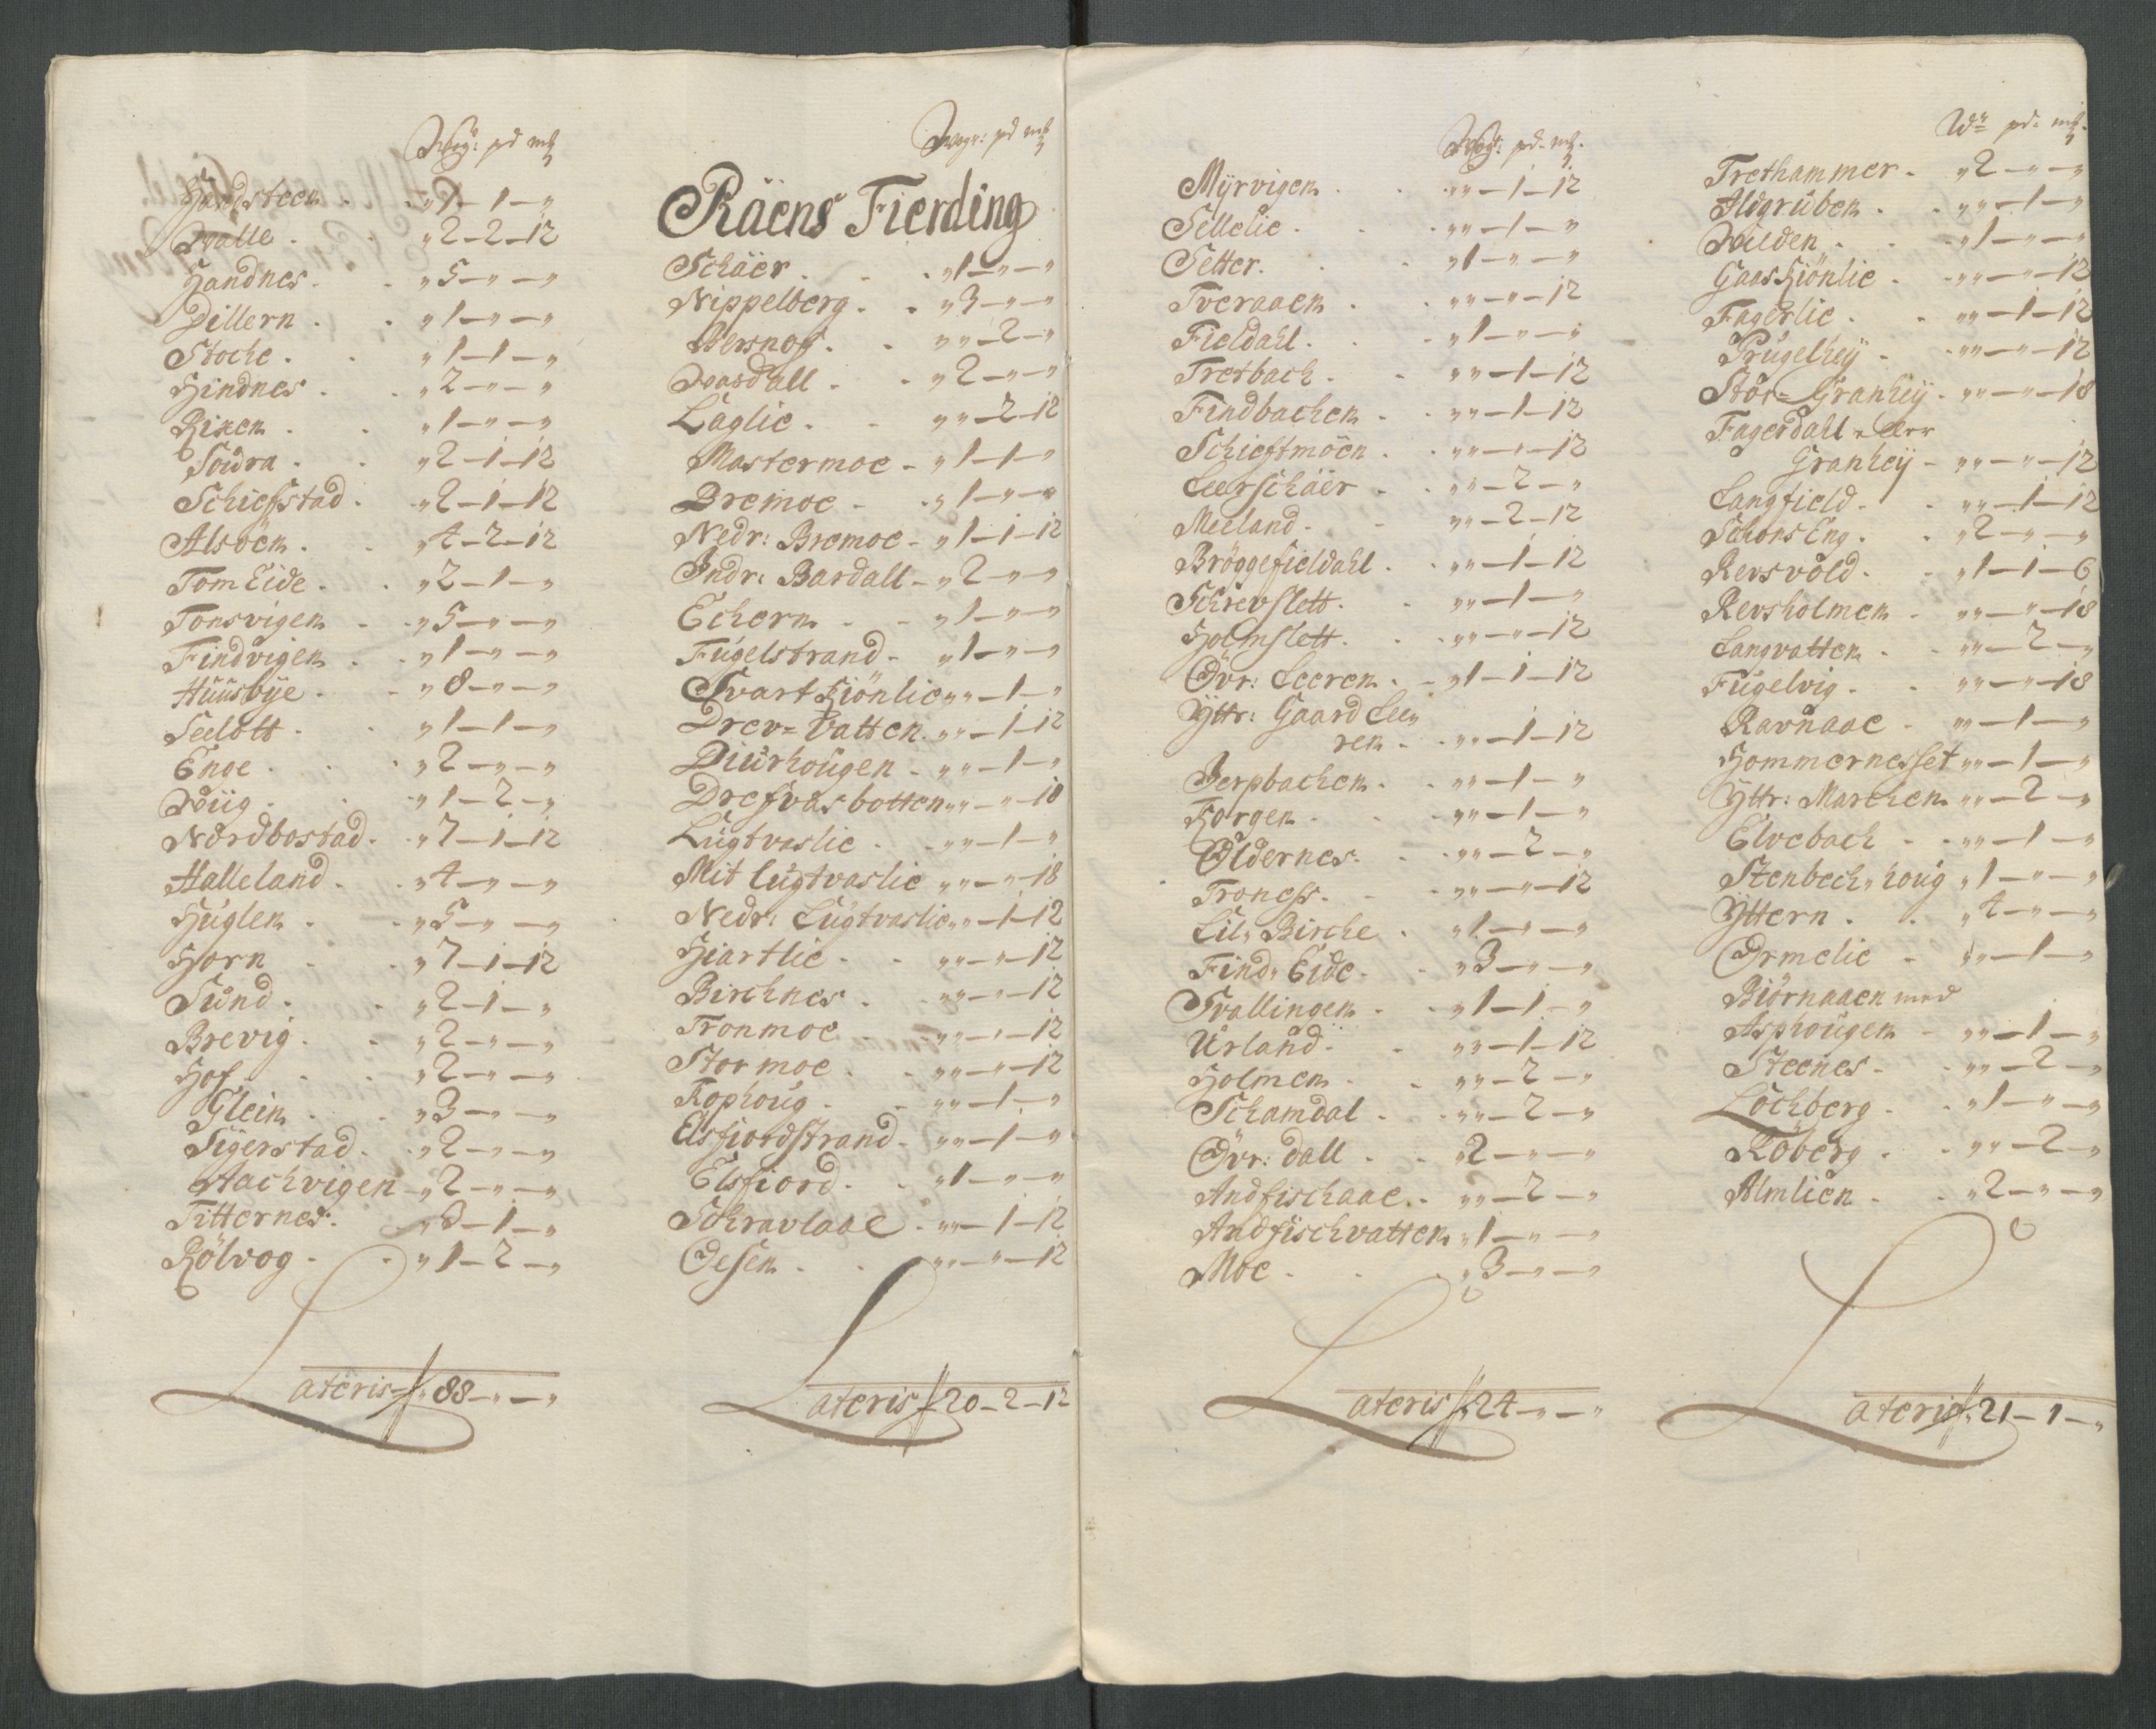 Wog: pd mk
Handsteen . . „ 1 – 1 – „
Walle . . „ 2 – 2 – 12
Handnes . . „ 5 – „ – „
Dillern . . „ 1 – „ – „
Stoche . . „ 1 – 1 – „
Hindnes . . „ 2 – „ – „
Rixen . . „ 1 – „ – „
Soidra . . „ 2 – 1 – 12
Schiefstad . „ 2 – 1 – 12
Alsöen . . „ 4 – 2 – 12
Tom Eide . . „ 2 – 1 – „
Tonsvigen . . „ 5 – „ – „
Findvigen . . „ 1 – „ – „
Huüsbÿe . . „ 8 – „ – „
Seelótt . . „ 1 – 1 – „
Enge . . „ 2 – „ – „
Wiig . . „ 1 – 2 – „
Nordbostad . „ 7 – 1 – 12
Halleland . . „ 4 – „ – „
Huglen . . „ 5 – „ – „
Horn . . „ 7 – 1 – 12
Sund . . „ 2 – 1 – „
Brevig . . „ 2 – „ – „
Hof . . „ 2 – „ – „
Glein . . „ 3 – „ – „
Sigerstad . . „ 2 – „ – „
Aachvigen „ 2 – „ – „
Titternes . „ 3 – 1 – „
Rölvog . . „ 1 – 2 – „
Lateris „ 88 – „ – „
Wogr: pd mk
Räens Fierding
Schäer . . „ 1 – „ – „
Nippelberg . . „ 3 – „ – „
. . „ „ – 2 – „
Waasdall . . „ 2 – „ – „
Laglie . . „ „ – 2 – 12
Mastermoe – „ 1 – 1 – „
Bremoe – „ 1 – „ – „
Nedr: Bremoe – „ 1 – 1 – 12
Indr: Bardall – „ 2 – „ – „
Echern . . „ 1 – „ – „
Fugelstrand – „ 1 – „ – „
Svart Kiönlie „ „ – 1 – „
Drev= Vatten „ „ – 1 – 12
Diurhougen – „ „ – 1 – „
Drefvasbotten „ „ – „ – 18
Lugtvaslie . „ „ – 1 – „
Mit lugtvaslie „ „ – „ – 18
Nedr: Lugtvaslie „ „ – 1 – 12
Hiartlie . . „ „ – „ – 12
Birchnes . „ „ – „ – 12
Tronmoe . „ „ – „ – 12
Stormoe . . „ „ – „ – 12
Kophoug . . „ „ – 1 – „
Elsfiordstrand – „ „ – 1 – „
Elsfiord . . „ 1 – „ – „
Schravlaae . „ „ – 1 – 12
Oesen . . „ „ – „ – 12
Lateris 20 – 2 – 12
Wogr: pd. mk.
Myrvigen . . „ „ – 1 – 12
Sellelie . . „ „ – 1 – „
Setter . . „ 1 – „ – „
Tveraaen . . „ „ – „ – 12
Fieldahl . . „ 1 – „ – „
Tretbach . . „ „ – 1 – 12
Findbachen . . „ „ – 1 – 12
Schieftmöen . . „ „ – „ – 12
Leerschäer . . „ „ – 2 – „
Meeland . . „ „ – 2 – 12
Bröggefieldahl . „ „ – 1 – 12
Schrevslett . . „ „ – 1 – „
Holmslett . . „ „ – „ – 12
Övr: Leeren . – „ 1 – 1 – 12
Yttr: Gaard Lee„
ren . . „ „ – 1 – 12
Jerpbachen . . „ „ – 1 – „
Korgen . . „ „ – 1 – „
Oldernes . . „ „ – 2 – „
Troness . . „ „ – „ – 12
Lil„ Birche . „ 1 – „ – „
Find„ Eide . . „ 3 – „ – „
Svallingen . . „ 1 – 1 – „
Urland . . „ „ – 1 – 12
Holmen . . „ „ – 2 – „
Schamdal . . „ „ – 2 – „
Övr: dall . . „ 2 – „ – „
Andfischaae . . „ „ – 2 – „
Andfischvatten „ 1 – „ – „
Moe . . „ 3 – „ – „
Lateris „ 24 – „ – „
Wr pd: mk.
Trethammer . „ 2 – „ – „
Ildgruben . . „ „ – 1 – „
Wilden . . „ 1 – „ – „
Gaas Kiönlie . „ „ – „ – 12
Fagerlie . . „ „ – 1 – 12
Prugelheÿ . . „ „ – „ – 12
Stör= Granheÿ . „ „ – „ – 18
Fagerdahl eller
Granheÿ – „ „ – „ – 12
Langfield . . „ „ – 1 – 12
SchonsEng . . „ 2 – „ – „
Revsvold . . „ 1 – 1 – 6
Revsholmen . „ „ – „ – 18
Langvatten . . „ „ – 2 – „
Fugelvig . . „ „ – „ – 18
Ravnaae . „ „ – 1 – „
Hommernesset „ „ – 1 – „
Yttr: Marchen „ „ – 2 – „
Elvebach . . „ „ – 1 – „
Stenbech„houg „ 1 – „ – „
Yttern . . „ 4 – „ – „
Ormelie . „ „ – 1 – „
Biörnaaen med
Asphougen – „ „ – 1 – „
Steenes . . „ „ – 2 – „
Lochberg . . „ 1 – „ – „
Röberg . . „ „ – 2 – „
Almlien . . „ 2 – „ – „
Lateris „ 21 – 1 – „